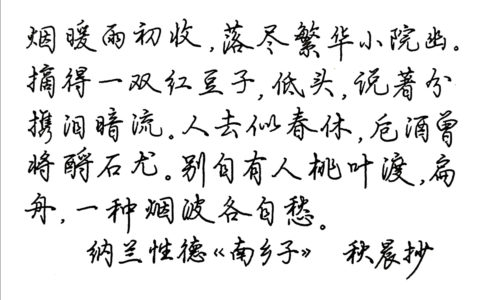 烟暖雨初收，落尽繁华小院幽。
摘得一双红豆子，低头，说著分
携泪暗流。人去似春休，卮酒曾
将酹石尤。别自有人桃叶渡，扁
舟，一种烟波各自愁。
纳兰性德《南乡子》 秋晨抄